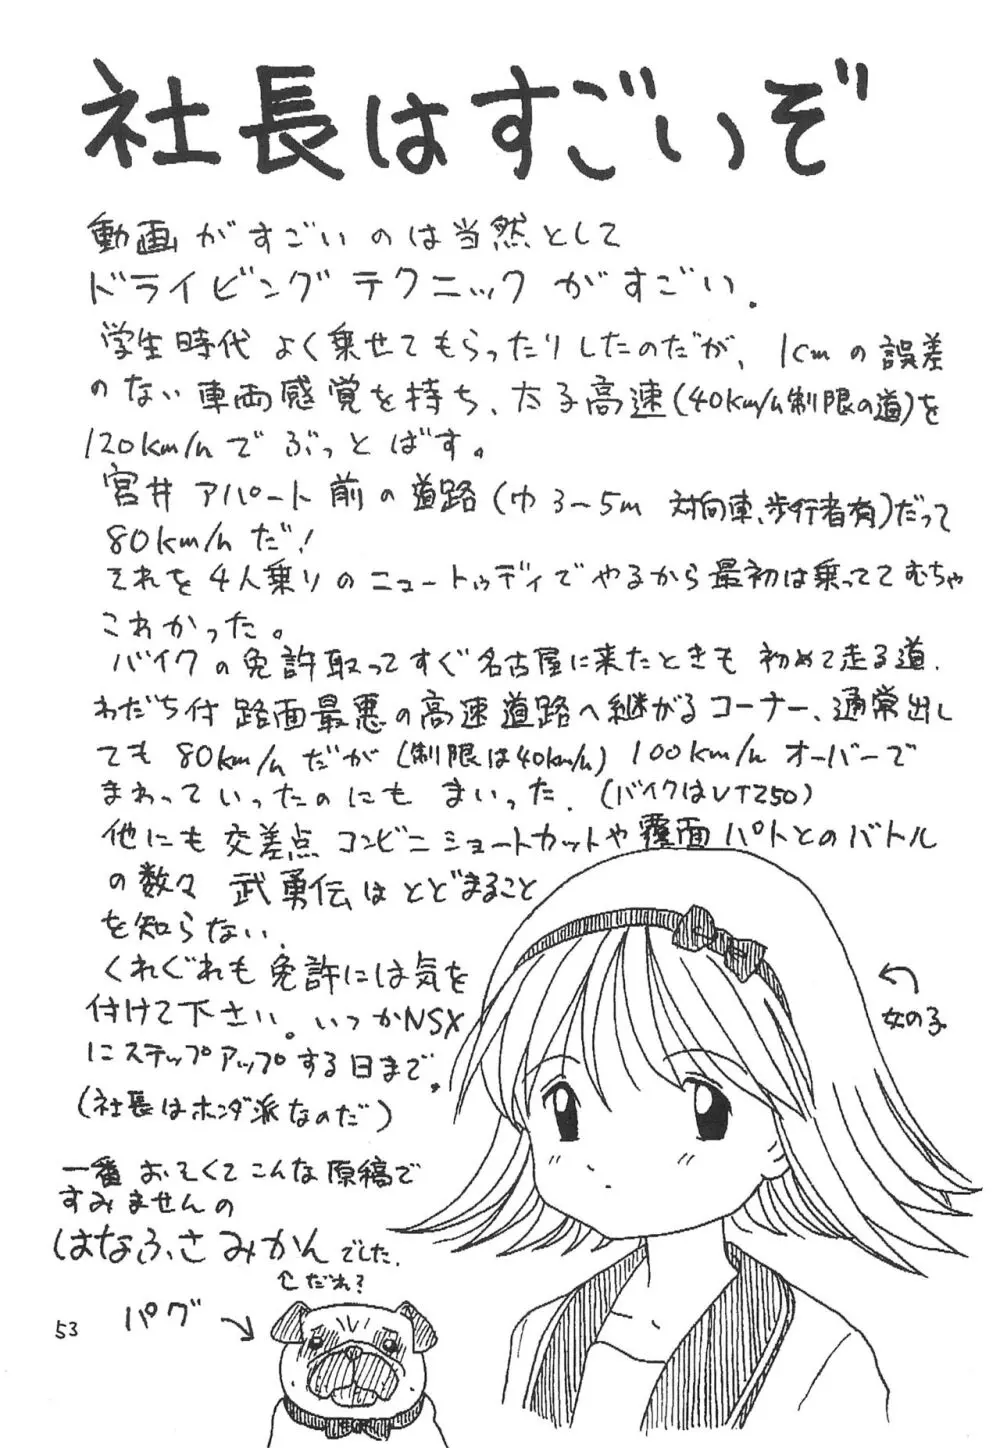 社長はすごいぞ
動画がすごいのは当然として
ドライビングテクニックがすごい.
学生時代よく乗せてもらったりしたのだが、1cmの誤差
のない車両感覚を持ち、太子高速(40km/h制限の道)を
120km/hでぶっとばす。
宮井アパート前の道路(巾3〜5m 対向車、歩行者有)だって
80km/hだ!
それを4人乗りのニュートゥディでやるから最初は乗っててむちゃ
こわかった。
バイクの免許取ってすぐ名古屋に来たときも初めて走る道.
わだち付路面最悪の高速道路へ継がるコーナー、通常出し
ても80km/hだが(制限は40km/h)100km/hオーバーで
まわっていったのにもまいった.(バイクはVTZ50)
他にも交差点コンビニショートカットや覆面パトとのバトル
の数々武勇伝はとどまること
を知らない.
くれぐれも免許には気を
付けて下さい。いつかNSX
にステップアップする日まで.
(社長はホンダ派なのだ)
女の子
一番おそくてこんな原稿で
すみませんの
はなふさみかんでした.
だれ?
パグ
53